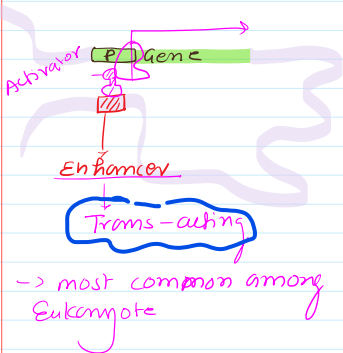 P Gene
Activator
Enhancer
Trans-acting
-> most common among
Eukaryote